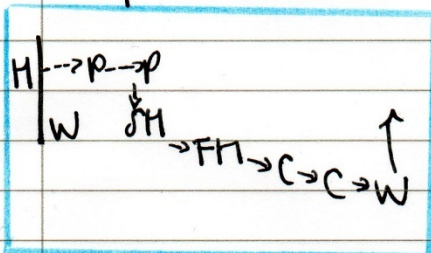 H P P
W δM
FM C C W